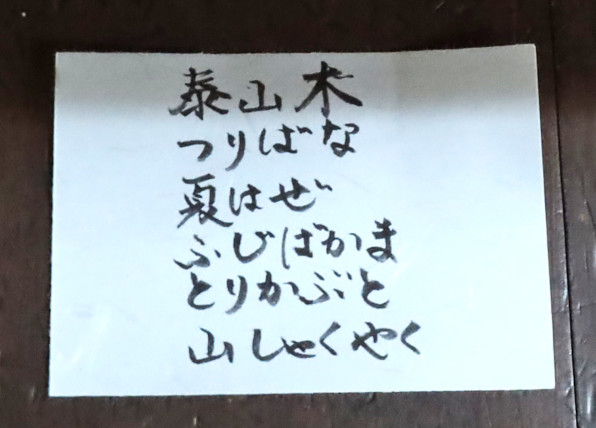 泰山木
つりばな
夏はぜ
ふじばかま
とりかぶと
山しゃくやく